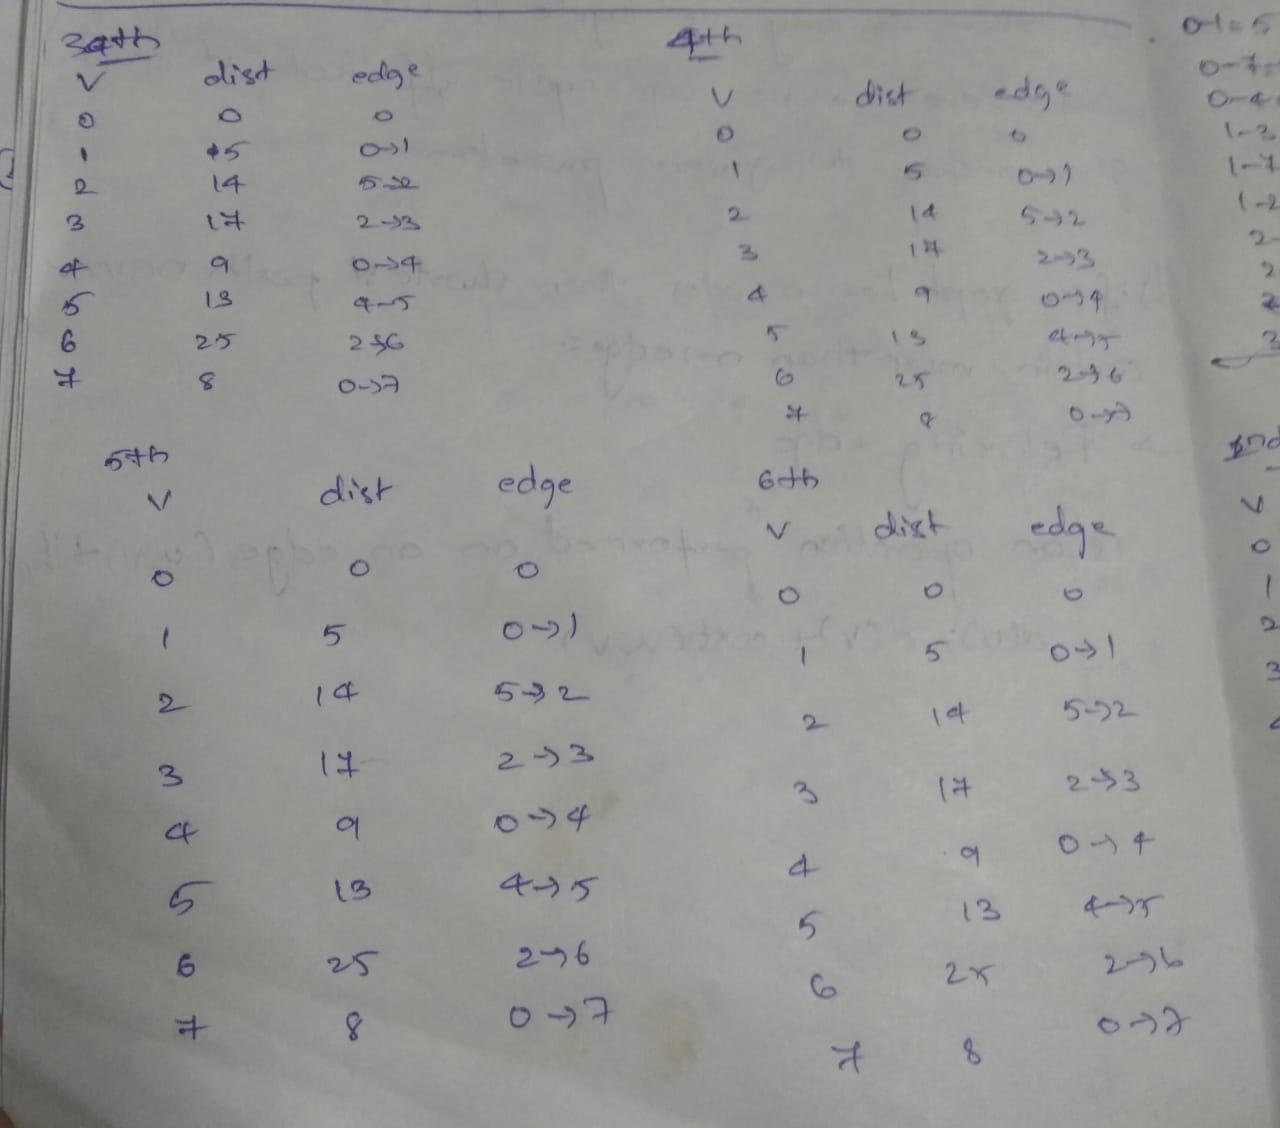 3rd
V dist edge
0 0 0
1 5 0→1
2 14 5→2
3 17 2→3
4 9 0→4
5 13 4→5
6 25 2→6
7 8 0→7
4th
V dist edge
0 0 0
1 5 0→1
2 14 5→2
3 17 2→3
4 9 0→4
5 13 4→5
6 25 2→6
7 8 0→7
5th
V dist edge
0 0 0
1 5 0→1
2 14 5→2
3 17 2→3
4 9 0→4
5 13 4→5
6 25 2→6
7 8 0→7
6th
V dist edge
0 0 0
1 5 0→1
2 14 5→2
3 17 2→3
4 9 0→4
5 13 4→5
6 25 2→6
7 8 0→7
0-1=5
0-7=
0-4
1-3
1-7
1-2
2-
2
2
3
2nd
V
0
1
2
3